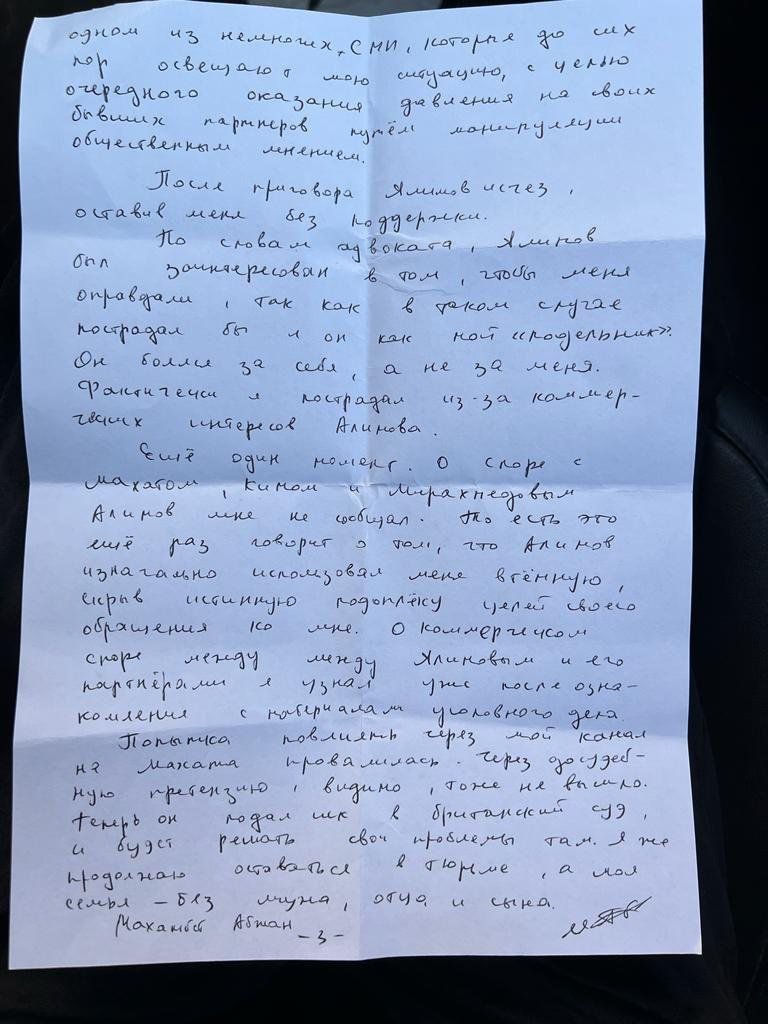 одном из немногих СМИ, которые до сих
пор освещают мою ситуацию, с целью
очередного оказания давления на своих
бывших партнеров путём манипуляции
общественным мнением.
После приговора Алимов исчез,
оставив меня без поддержки.
По словам адвоката, Алимов
был заинтересован в том, чтобы меня
оправдали, так как в таком случае
пострадал бы и он как мой «подельник».
Он болел за себя, а не за меня.
Фактически я пострадал из-за коммер-
ческих интересов Алимова.
Ещё один момент. О споре с
Махатом, Кимом и Мирахмедовым
Алимов мне не сообщал. То есть это
ещё раз говорит о том, что Алимов
изначально использовал меня втёмную,
скрыв истинную подоплёку целей своего
обращения ко мне. О коммерческом
споре между между Алимовым и его
партнёрами я узнал уже после озна-
комления с материалами уголовного дела.
Попытка повлиять через мой канал
на Махата провалилась. Через досудеб-
ную претензию, видимо, тоже не вышло.
Теперь он подал иск в британский суд,
и будет решать свои проблемы там. Я же
продолжаю оставаться в тюрьме, а моя
семья – без мужа, отца и сына.
Махамбет Абжан
-3-